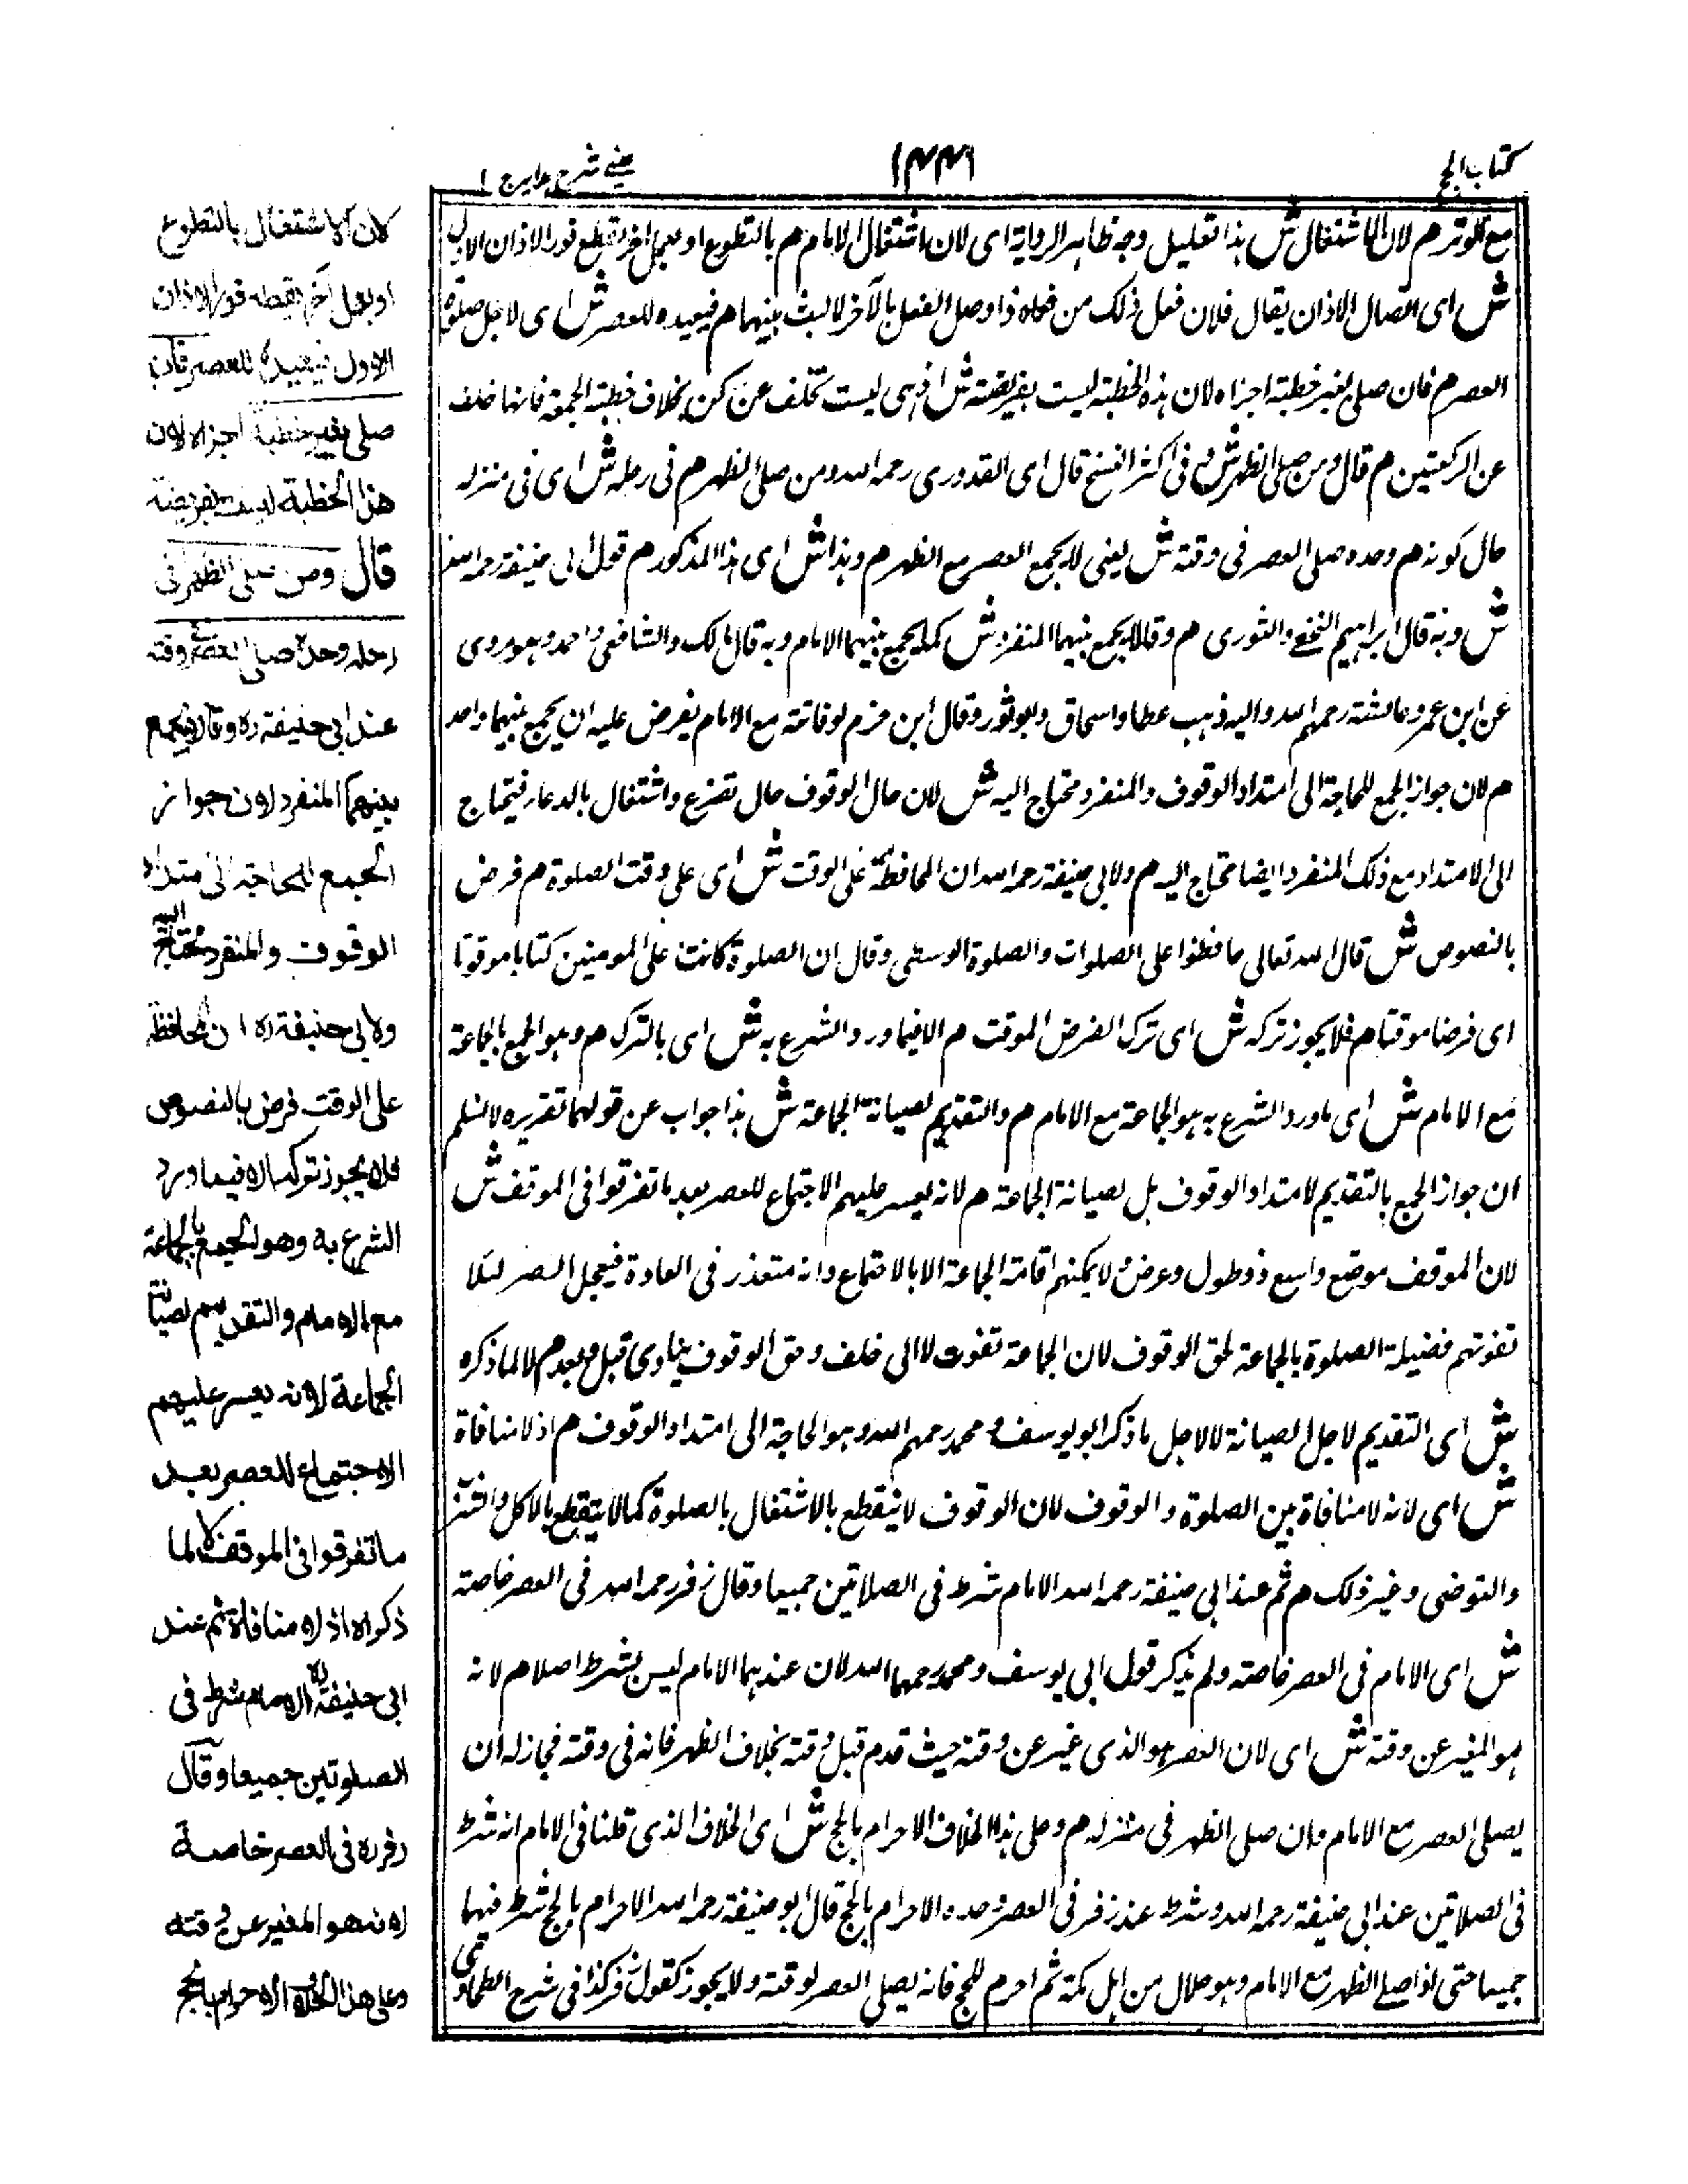 كتاب الحج
١٤٤٦
عيني شرح هدايه ج ١
مع الوتر م لان الاشتغال ش هذا تعليل وجه ظاهر الرواية اى لان اشتغال الامام م بالتطوع او بعمل اخر يقطع فور الاذان الاول
ش اى اتصال الاذان يقال فلان فعل ذلك من فوره اذا وصل الفعل بالآخر لا لبث بينهما م فيعيده للعصر ش اى لاجل صلوة
العصر م فان صلى بغير خطبة اجزاه لان هذه الخطبة ليست بفريضة ش اذ هى ليست تخلف عن ركن بخلاف خطبة الجمعة فانها خلف
عن الركعتين م قال ومن صلى الظهر ش و فى اكثر النسخ قال اى القدورى رحمه الله ومن صلى الظهر م فى رحله ش اى فى منزله
حال كونه م وحده صلى العصر فى وقته ش يعنى لا يجمع العصر مع الظهر م وهذا ش اى هذا المذكور م قول ابى حنيفة رحمه الله
ش وبه قال ابراهيم النخعى والثورى م وقالا يجمع بينهما المنفرد ش كما يجمع بينهما الامام وبه قال مالك والشافعى واحمد وهو مروى
عن ابن عمر وعائشة رحمهم الله واليه ذهب عطا واسحاق وابو ثور وقال ابن حزم لو فاتته مع الامام يفرض عليه ان يجمع بينهما واحد
م لان جواز الجمع للحاجة الى امتداد الوقوف والمنفرد محتاج اليه ش لان حال الوقوف حال تضرع واشتغال بالدعاء فيحتاج
الى الامتداد مع ذلك المنفرد ايضا محتاج اليه م ولابى حنيفة رحمه الله ان المحافظة على الوقت ش اى على وقت الصلوة م فرض
بالنصوص ش قال الله تعالى حافظوا على الصلوات والصلوة الوسطى وقال ان الصلوة كانت على المومنين كتابا موقوتا
اى فرضا موقتا م فلا يجوز تركه ش اى ترك الفرض الموقت م الا فيما ورد الشرع به ش اى بالترك م وهو الجمع بالجماعة
مع الامام ش اى ما ورد الشرع به هو الجماعة مع الامام م والتقديم لصيانة الجماعة ش هذا جواب عن قولهما تقريره لا نسلم
ان جواز الجمع بالتقديم لامتداد الوقوف بل لصيانة الجماعة م لانه يعسر عليهم الاجتماع للعصر بعد ما تفرقوا فى الموقف ش
لان الموقف موضع واسع ذو طول وعرض لا يمكنهم اقامة الجماعة الا بالاجتماع وانه متعذر فى العادة فيعجل العصر لئلا
تفوتهم فضيلة الصلوة بالجماعة لحق الوقوف لان الجماعة تفوت لا الى خلف وحق الوقوف يتادى قبل وبعد م لا لما ذكره
ش اى التقديم لاجل الصيانة لا لاجل ما ذكر ابو يوسف ومحمد رحمهم الله وهو الحاجة الى امتداد الوقوف م اذ لا منافاة
ش اى لانه لا منافاة بين الصلوة والوقوف لان الوقوف لا ينقطع بالاشتغال بالصلوة كما لا ينقطع بالاكل والشرب
والتوضى وغير ذلك م ثم عند ابى حنيفة رحمه الله الامام شرط فى الصلاتين جميعا وقال زفر رحمه الله فى العصر خاصة
ش اى الامام فى العصر خاصة ولم يذكر قول ابى يوسف ومحمد رحمهما الله لان عندهما الامام ليس بشرط اصلا م لانه
هو المغير عن وقته ش اى لان العصر هو الذى غير عن وقته حيث قدم قبل وقته بخلاف الظهر فانه فى وقته فجاز له ان
يصلى العصر مع الامام وان صلى الظهر فى منزله م وعلى هذا الخلاف الاحرام بالحج ش اى الخلاف الذى قلنا فى الامام انه شرط
فى الصلاتين عند ابى حنيفة رحمه الله وشرط عند زفر فى العصر وحده الاحرام بالحج قال ابو حنيفة رحمه الله الاحرام بالحج شرط فيهما
جميعا حتى لو صلى الظهر مع الامام وهو حلال من اهل مكة ثم احرم للحج فانه يصلى العصر لوقته ولا يجوز كقول زفر كذا فى شرح الطحاوى
لان الاشتغال بالتطوع
او بعمل آخر يقطع فور الاذان
الاول فيعيده للعصر فان
صلى بغير خطبة اجزاه لان
هذه الخطبة ليست بفريضة
قال ومن صلى الظهر فى
رحله وحده صلى العصر فى وقته
عند ابى حنيفة ره وقالا يجمع
بينهما المنفرد لان جواز
الجمع للحاجة الى امتداد
الوقوف والمنفرد محتاج اليه
ولابى حنيفة ره ان المحافظة
على الوقت فرض بالنصوص
فلا يجوز تركه الا فيما ورد
الشرع به وهو الجمع بالجماعة
مع الامام والتقديم لصيانة
الجماعة لانه يعسر عليهم
الاجتماع للعصر بعد
ما تفرقوا فى الموقف لا لما
ذكراه اذ لا منافاة ثم عند
ابى حنيفة ره الامام شرط فى
الصلوتين جميعا وقال
زفر ره فى العصر خاصة
لانه هو المغير عن وقته
وعلى هذا الخلاف الاحرام بالحج